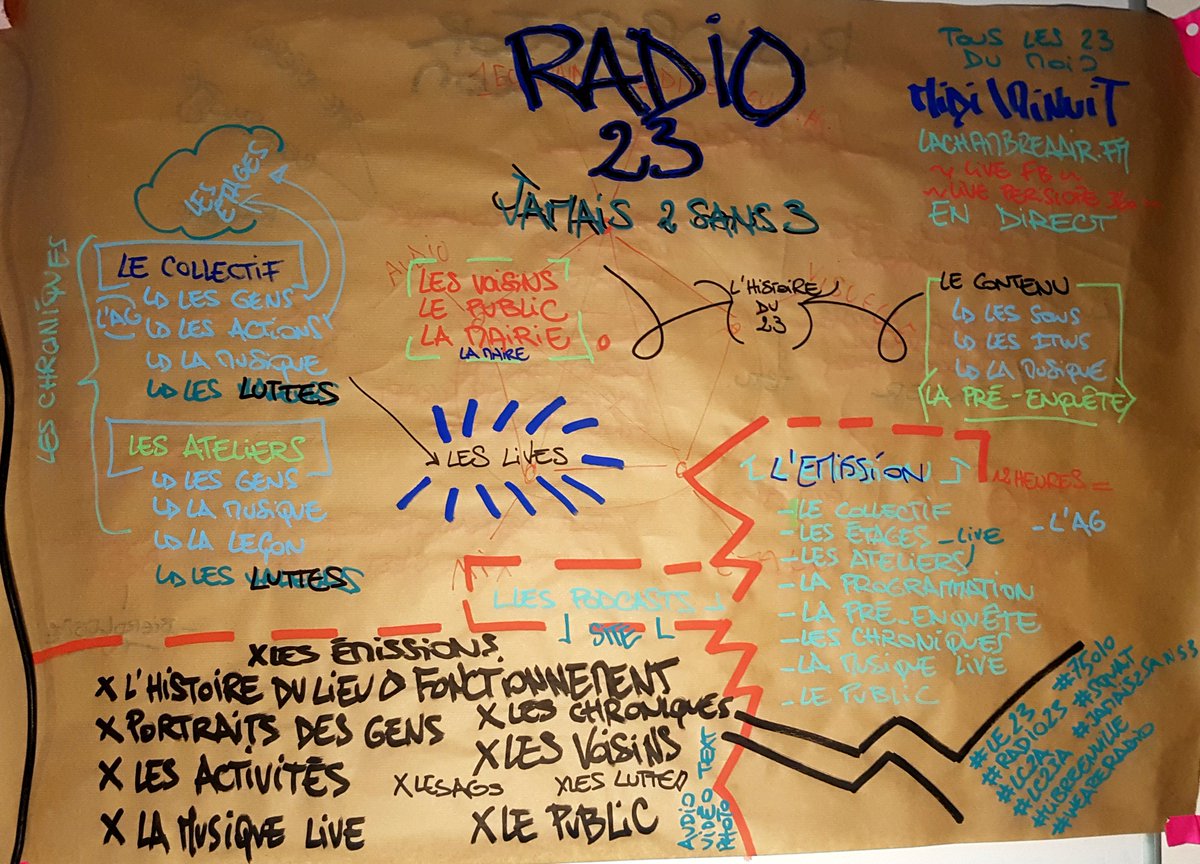 RADIO
23
JAMAIS 2 SANS 3
TOUS LES 23
DU MOIS
MIDI \ MINUIT
LACHAMBREAAIR.FM
~ LIVE FB ~
~ LIVE PERISCOPE
EN DIRECT
LES CHRONIQUES
LES ÉTAGES
LE COLLECTIF
L'AG
↳ LES GENS
↳ LES ACTIONS
↳ LA MUSIQUE
↳ LES LUTTES
LES ATELIERS
↳ LES GENS
↳ LA MUSIQUE
↳ LA LEÇON
↳ LES LUTTES
AUDIO
LES VOISINS
LE PUBLIC
LA MAIRIE
LA MAIRE
LES LIVES
L'HISTOIRE
DU
23
LE CONTENU
↳ LES SONS
↳ LES ITWS
↳ LA MUSIQUE
LA PRÉ-ENQUÊTE
L'EMISSION
12 HEURES =
- L'AG
- LE COLLECTIF
- LES ÉTAGES - LIVE
- LES ATELIERS
- LA PROGRAMMATION
- LA PRÉ-ENQUÊTE
- LES CHRONIQUES
- LA MUSIQUE LIVE
- LE PUBLIC
MIX
LES PODCASTS
SITE
X LES ÉMISSIONS
X L'HISTOIRE DU LIEU FONCTIONNEMENT
X PORTRAITS DES GENS
X LES CHRONIQUES
X LES ACTIVITÉS
X LES VOISINS
X LES AGS
X LES LUTTES
X LA MUSIQUE LIVE
X LE PUBLIC
AUDIO
VIDÉO TEXT
PHOTO
#LE23 #75010
#RADIO23 #SQUAT
#LC2A #JAMAIS2SANS3
#LC23A
#LIBREENVILLE
#WEARERADIO